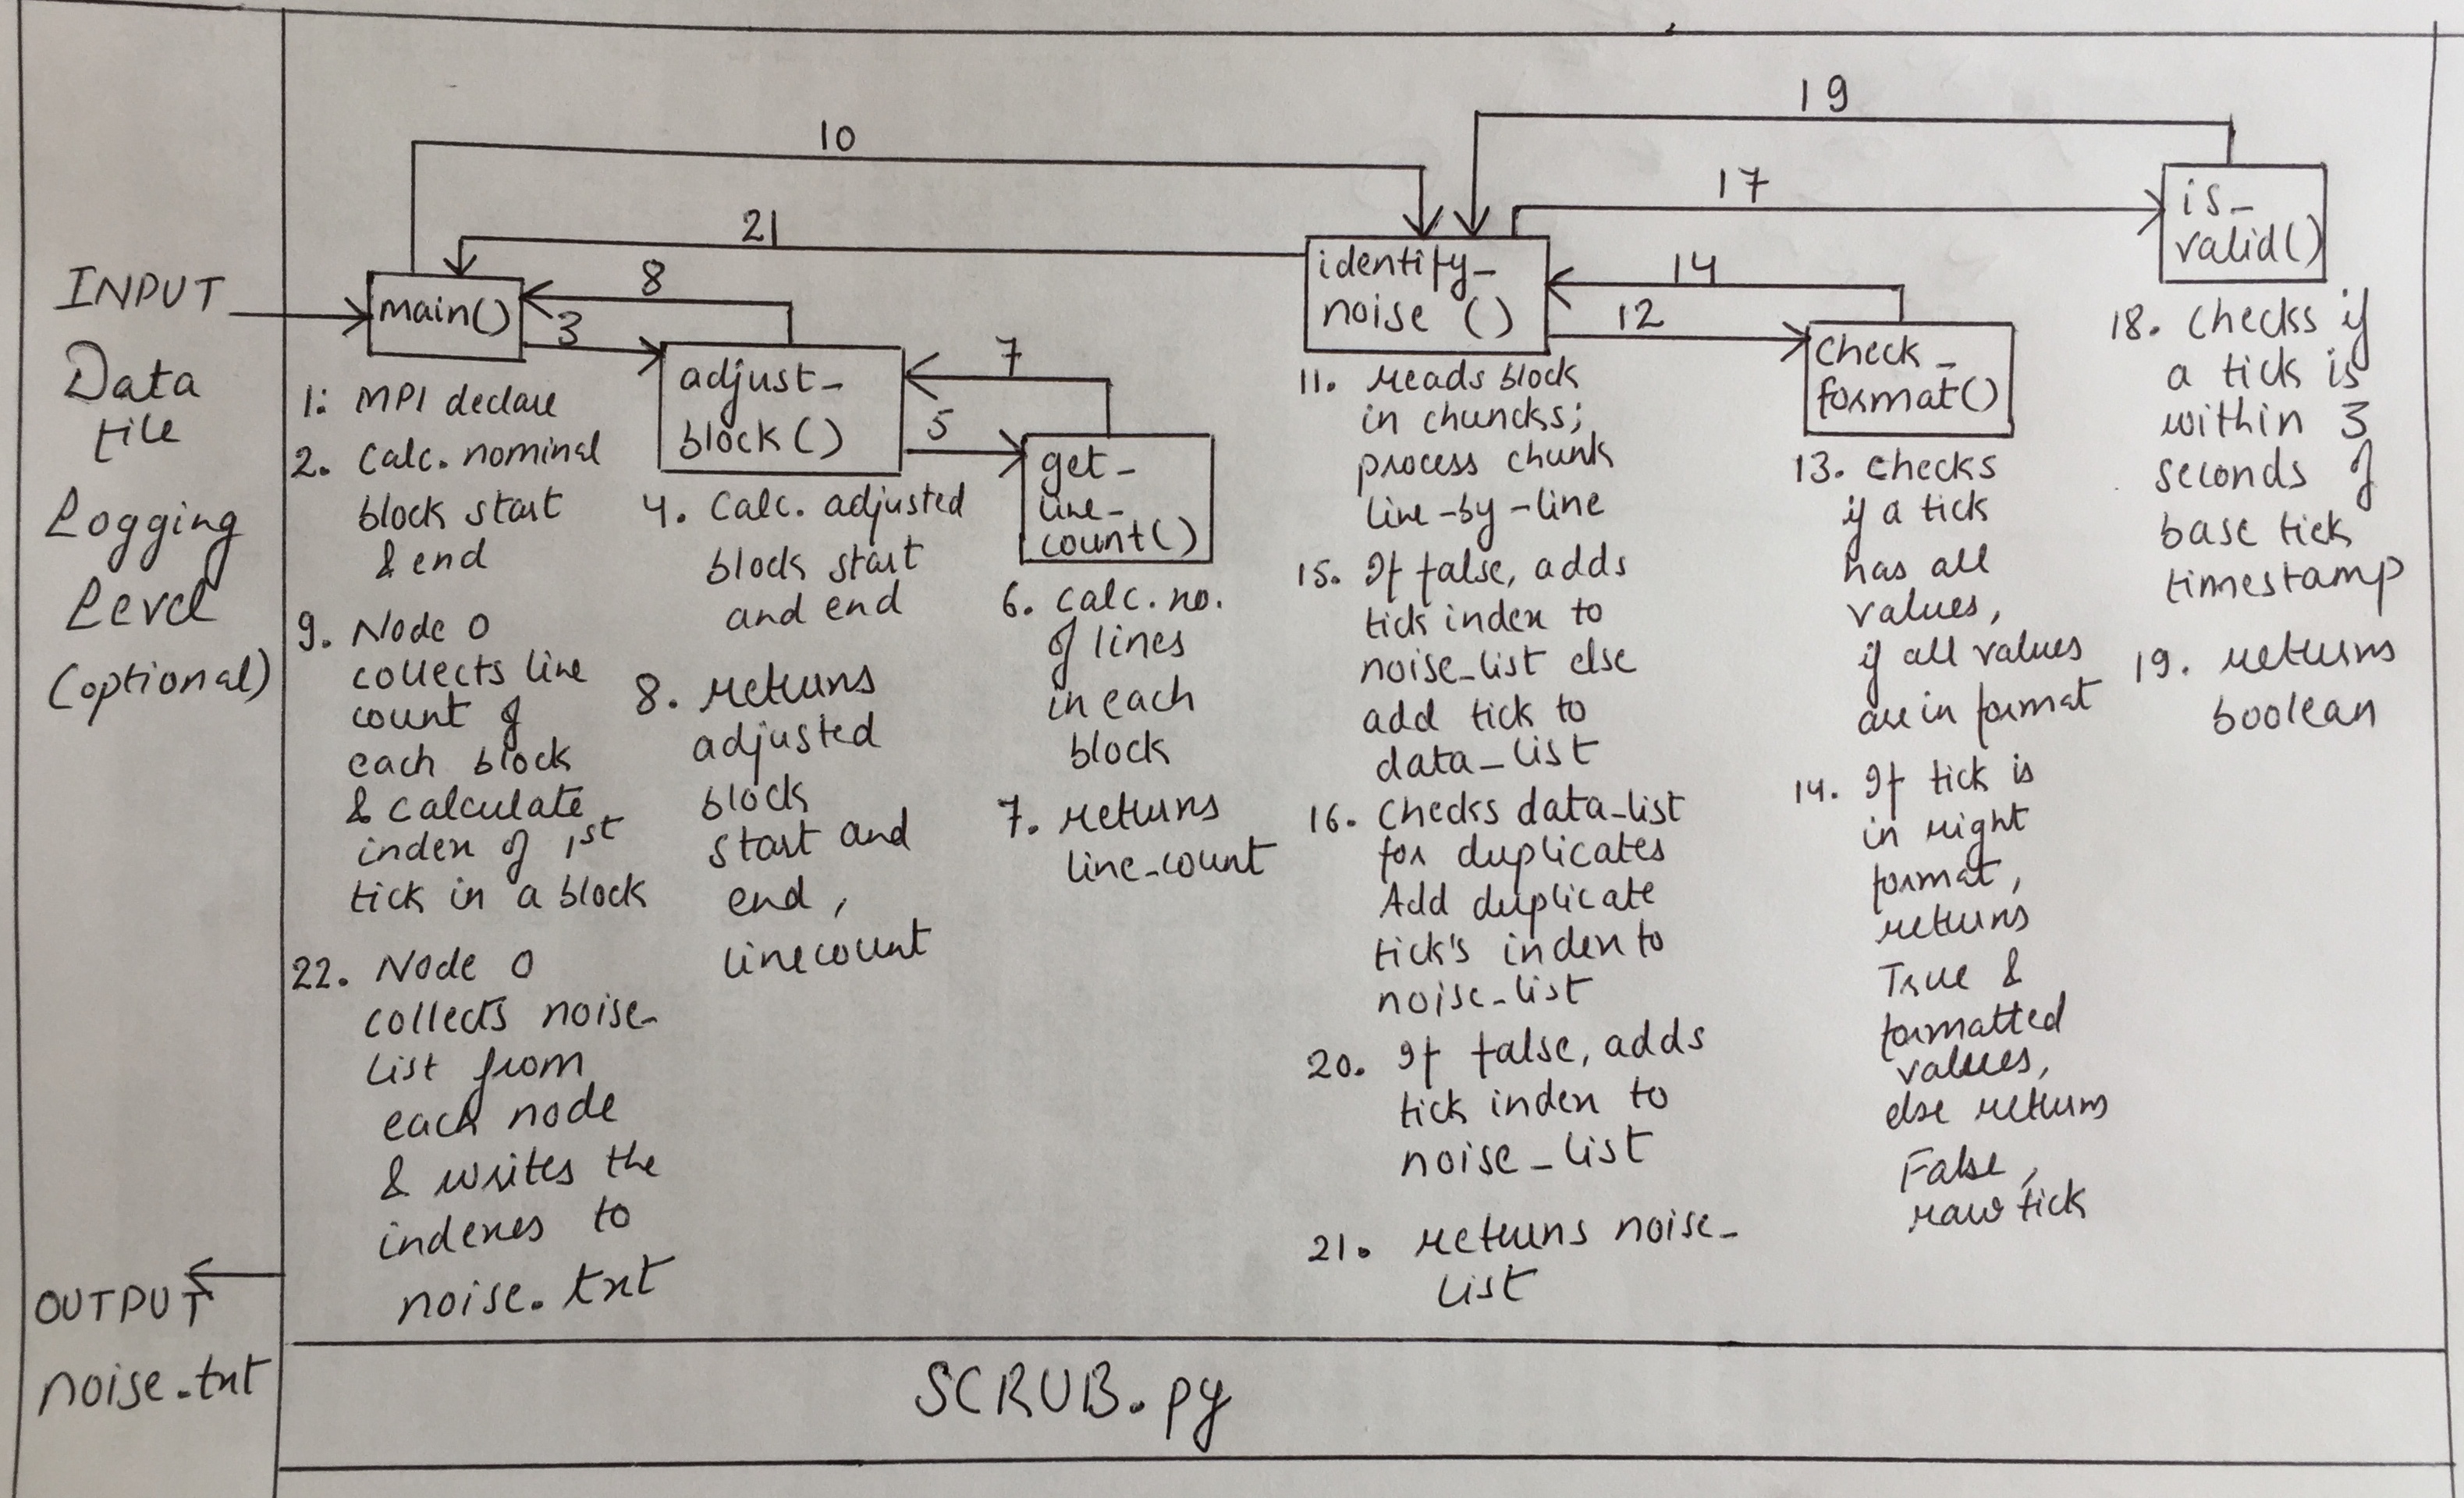 INPUT
Data
file
Logging
Level
(optional)
OUTPUT
noise.txt
10
21
8
3
7
5
19
17
14
12
main()
1: MPI declare
2. Calc. nominal
block start
& end
9. Node 0
collects line
count of
each block
& calculate
index of 1st
tick in a block
22. Node 0
collects noise_
list from
each node
& writes the
indexes to
noise.txt
adjust_
block()
4. Calc. adjusted
block start
and end
8. returns
adjusted
block
start and
end,
linecount
get_
line_
count()
6. calc. no.
of lines
in each
block
7. returns
line_count
identify_
noise ()
11. reads block
in chuncks;
process chunk
line-by-line
15. If false, adds
tick index to
noise_list else
add tick to
data_list
16. Checks data_list
for duplicates
Add duplicate
tick's index to
noise_list
20. If false, adds
tick index to
noise_list
21. returns noise_
list
check_
format()
13. checks
if a tick
has all
values,
if all values
are in format
14. If tick is
in right
format,
returns
True &
formatted
values,
else returns
False,
raw tick
is_
valid()
18. checks if
a tick is
within 3
seconds of
base tick
timestamp
19. returns
boolean
SCRUB.py